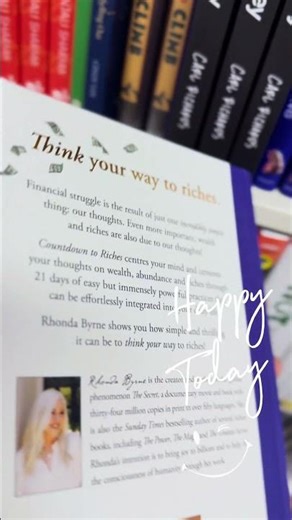 CLIMB
Think your way to riches.
Financial struggle is the result of just one incredibly simple
thing: our thoughts. Even more important, wealth
and riches are also due to our thoughts.
Countdown to Riches centres your mind and cements
your thoughts on wealth, abundance and riches through
21 days of easy but immensely powerful practices
can be effortlessly integrated into
Rhonda Byrne shows you how simple and
it can be to think your way to riches!
Happy
Today
Rhonda Byrne is the creator of the
phenomenon The Secret, a documentary movie and book
thirty-four million copies in print in over fifty languages.
is also the Sunday Times bestselling author of
books, including The Power, The Magic,
Rhonda's intention is to bring joy to billions and to
the consciousness of humanity through her work.